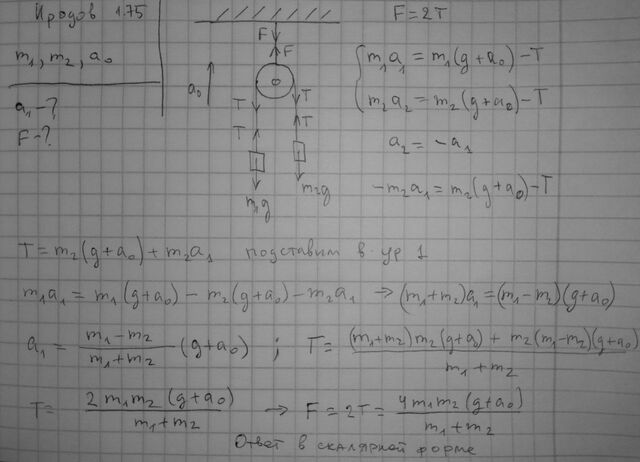 Иродов 1.75
m₁, m₂, a₀
a₁ - ?
F - ?
F
F
a₀
T
T
T
T
m₁g
m₂g
F = 2T
m₁a₁ = m₁(g+a₀) - T
m₂a₂ = m₂(g+a₀) - T
a₂ = -a₁
-m₂a₁ = m₂(g+a₀) - T
T = m₂(g+a₀) + m₂a₁ подставим в ур 1
m₁a₁ = m₁(g+a₀) - m₂(g+a₀) - m₂a₁ → (m₁+m₂)a₁ = (m₁-m₂)(g+a₀)
a₁ = (m₁-m₂)/(m₁+m₂) (g+a₀) ; T = ((m₁+m₂)m₂(g+a₀) + m₂(m₁-m₂)(g+a₀))/(m₁+m₂)
T = 2m₁m₂(g+a₀)/(m₁+m₂) → F = 2T = 4m₁m₂(g+a₀)/(m₁+m₂)
Ответ в скалярной форме